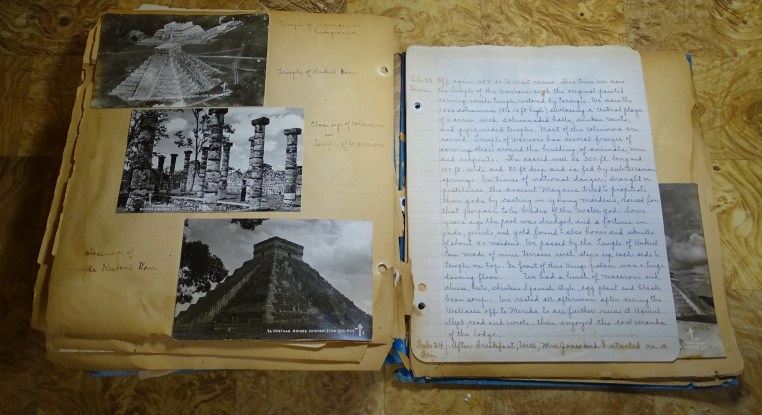 Temple of Warriors in
foreground
Temple of Kukul Kan
Close up of columns
Temple of Warriors
close up of
Kukul Kan
EL CASTILLO RUINAS CHICHEN ITZA YUC. MEX
Feb. 23 Off again at 9:00 to visit ruins. This time we saw
the Temple of the Warriors with the original painted
carvings inside temple restored by Carnegie. We saw the
1000 columns (8 to 10 ft high) enclosing a central plaza
of 5 acres with colonnaded halls, sunken courts,
and pyramided temples. Most of the columns are
round. Temple of Warriors has several friezes of
carving that around the building of animals, men
and serpents. The sacred well is 350 ft. long and
150 ft. wide, and 80 ft deep and is fed by subterranean
springs. In times of national danger, drought or
pestilence, the ancient Mayans tried to propitiate
their gods by casting in young maidens, dressed for
that purpose to be brides of the water god. Some
years ago the past was dredged and a fortune in
jade, jewels, and gold found - also bones and skulls
of about 40 maidens. We passed by the Temple of Kukul
Kan made of nine terraces with steps up each side to
temple on top. In front of this Kings palace was a large
dancing floor. We had a lunch of macaroni and
cheese, chicken Spanish style, egg plant and black
bean soup. We rested all afternoon after seeing the
Wallaces off to Merida to see further ruins at Uxmal.
Slept, read and wrote, then enjoyed the cool veranda
of the lodge.
Feb. 24 After breakfast, with Mrs. Jones and I started on a